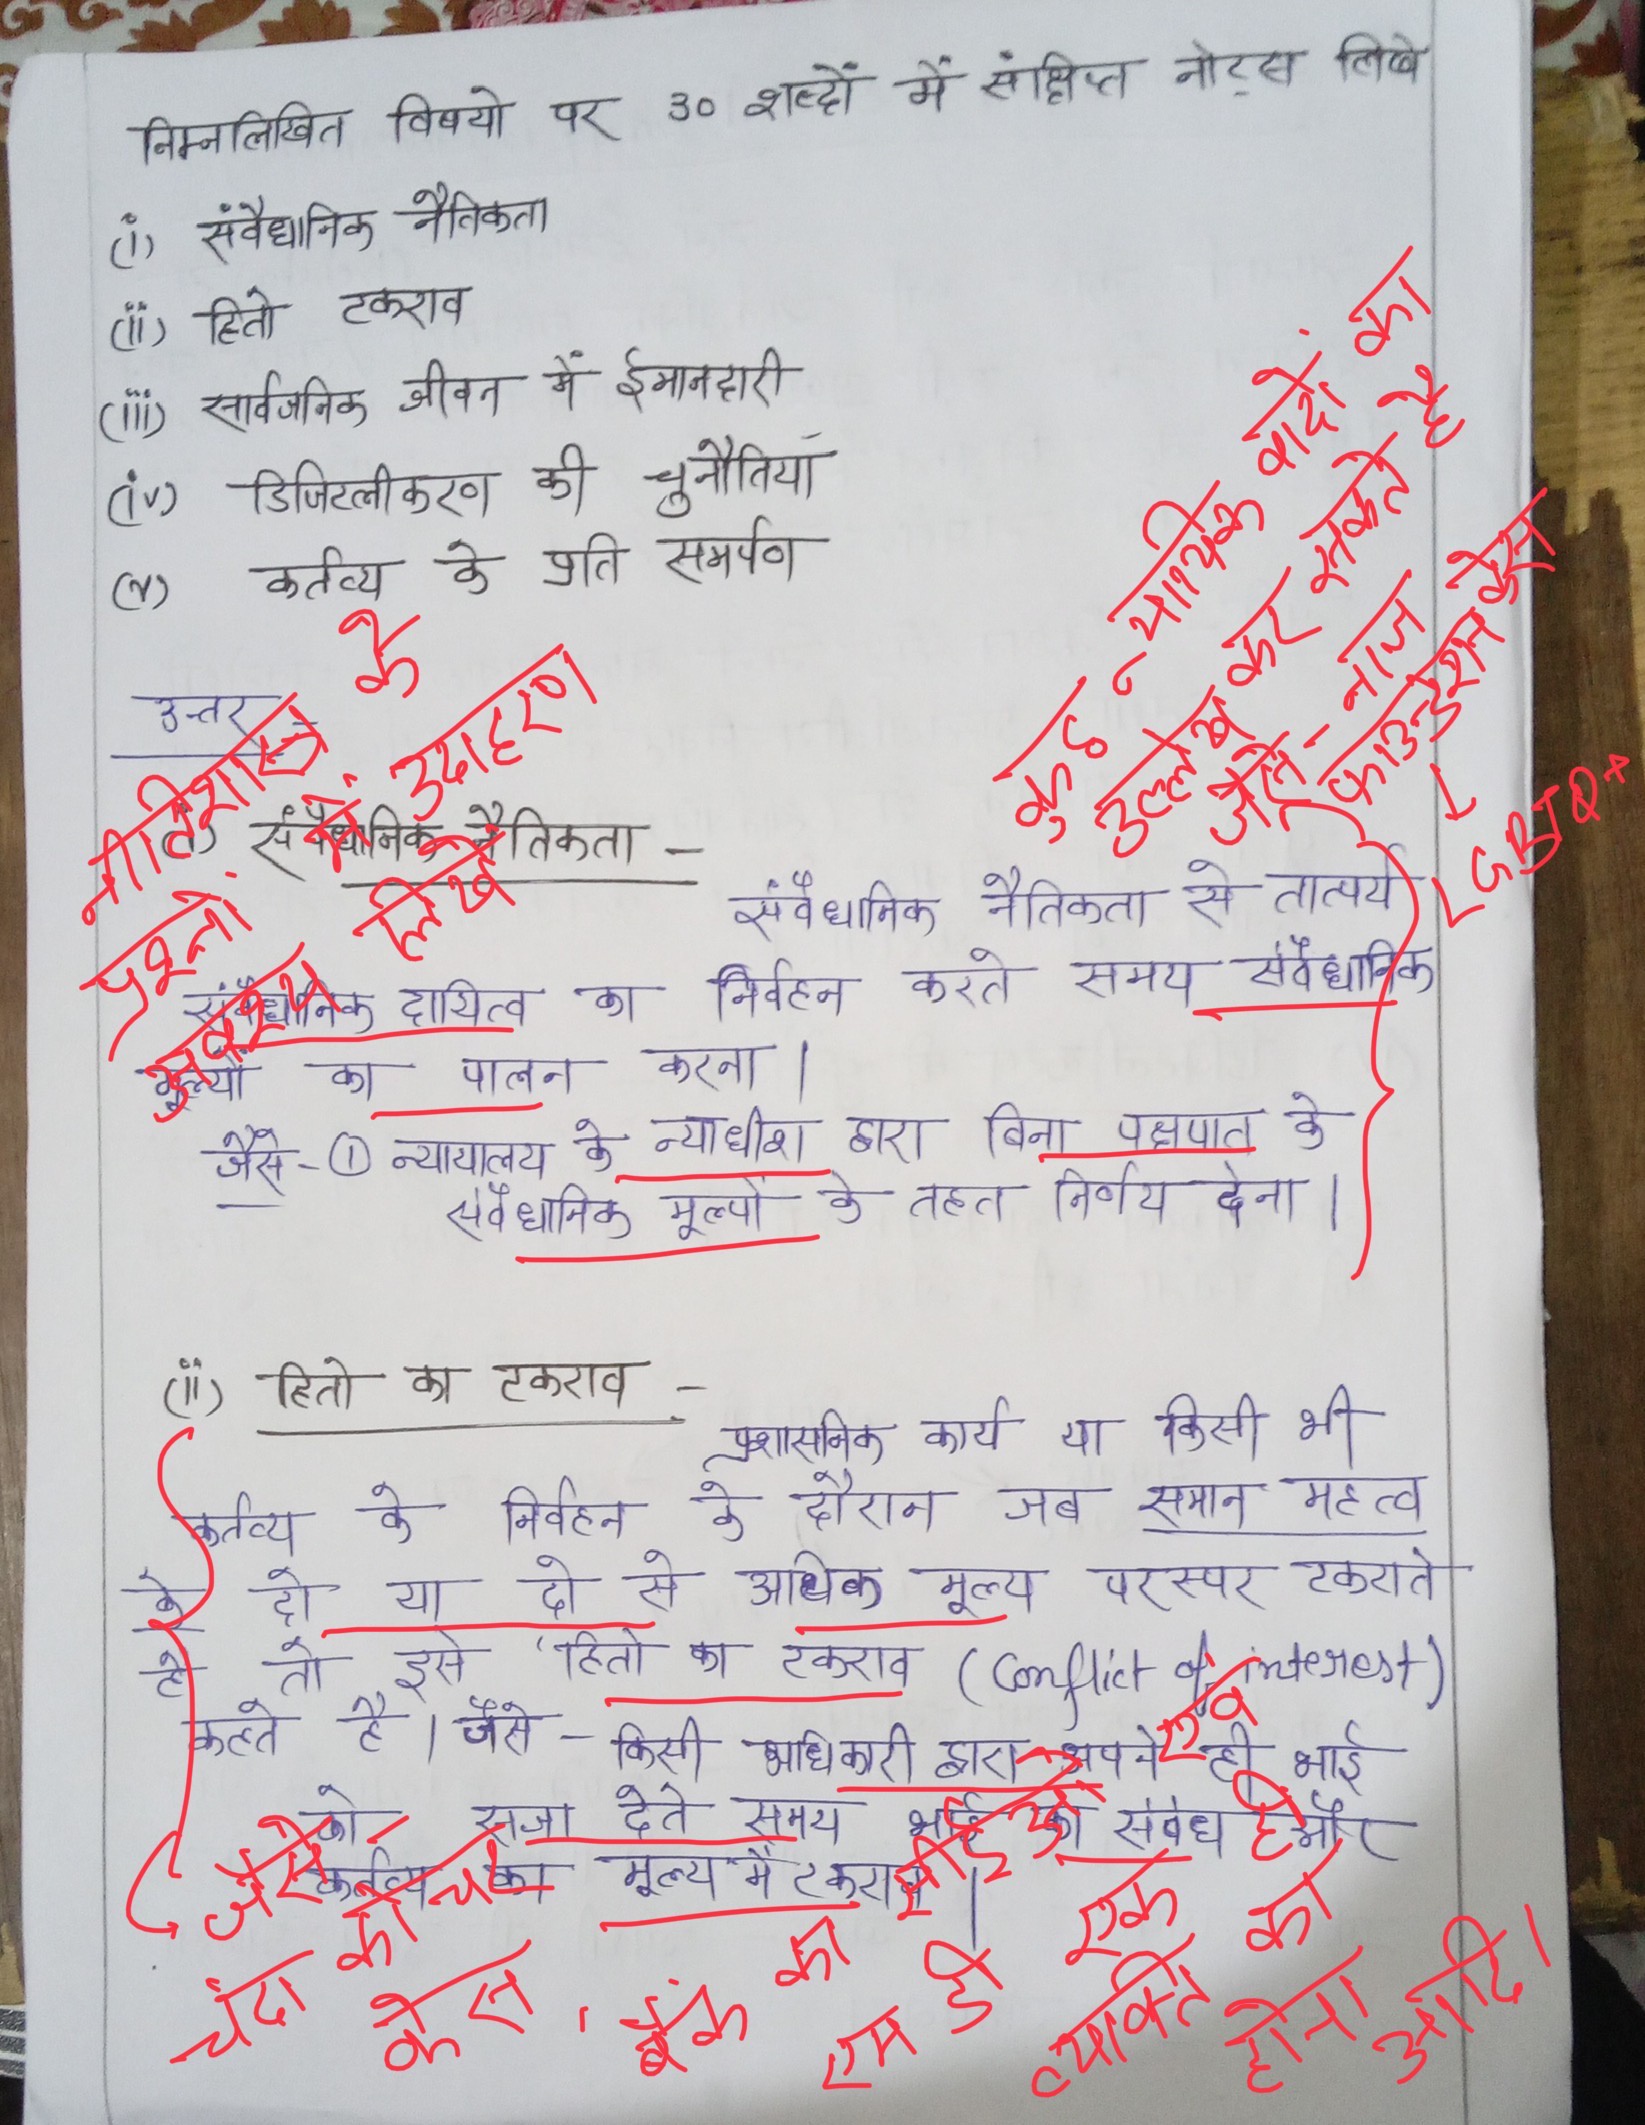 निम्नलिखित विषयो पर 30 शब्दों में संक्षिप्त नोट्स लिखे
(i) संवैधानिक नैतिकता
(ii) हितो टकराव
(iii) सार्वजनिक जीवन में ईमानदारी
(iv) डिजिटलीकरण की चुनौतियाँ
(v) कर्तव्य के प्रति समर्पण
उत्तर -
नीतिशास्त्र के
प्रश्नों में उदाहरण
अवश्य लिखें
कुछ न्यायिक वादों का
उल्लेख कर सकते है
जैसे - नाज
फाउन्डेशन केस
LGBTQ+
(i) संवैधानिक नैतिकता -
संवैधानिक नैतिकता से तात्पर्य
संवैधानिक दायित्व का निर्वहन करते समय संवैधानिक
मूल्यों का पालन करना।
जैसे - ① न्यायालय के न्याधीश द्वारा बिना पक्षपात के
संवैधानिक मूल्यों के तहत निर्णय देना।
(ii) हितो का टकराव -
प्रशासनिक कार्य या किसी भी
कर्तव्य के निर्वहन के दौरान जब समान महत्व
के दो या दो से अधिक मूल्य परस्पर टकराते
है तो इसे 'हितो का टकराव (Conflict of interest)
कहते है। जैसे - किसी अधिकारी द्वारा अपने ही भाई
को सजा देते समय भाई का संबंध और
कर्तव्य का मूल्य में टकराव।
जैसे - चंदा कोचर
केस, बैंक का
एम डी एवं
एक व्यक्ति का
ही होना आदि।